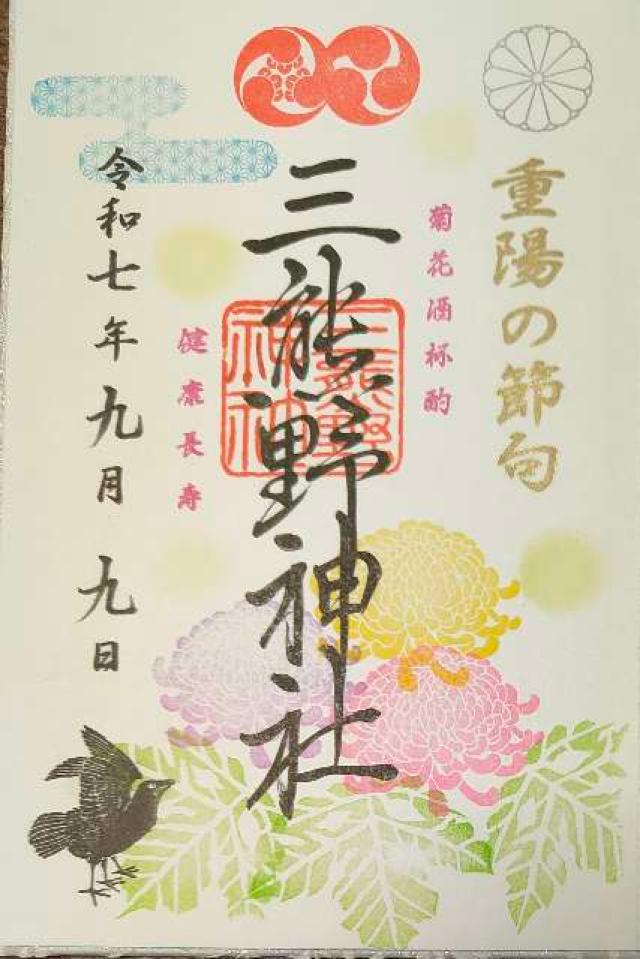 重陽の節句
菊花酒杯酌
三熊野神社
三熊野
神社
健康長寿
令和七年九月九日